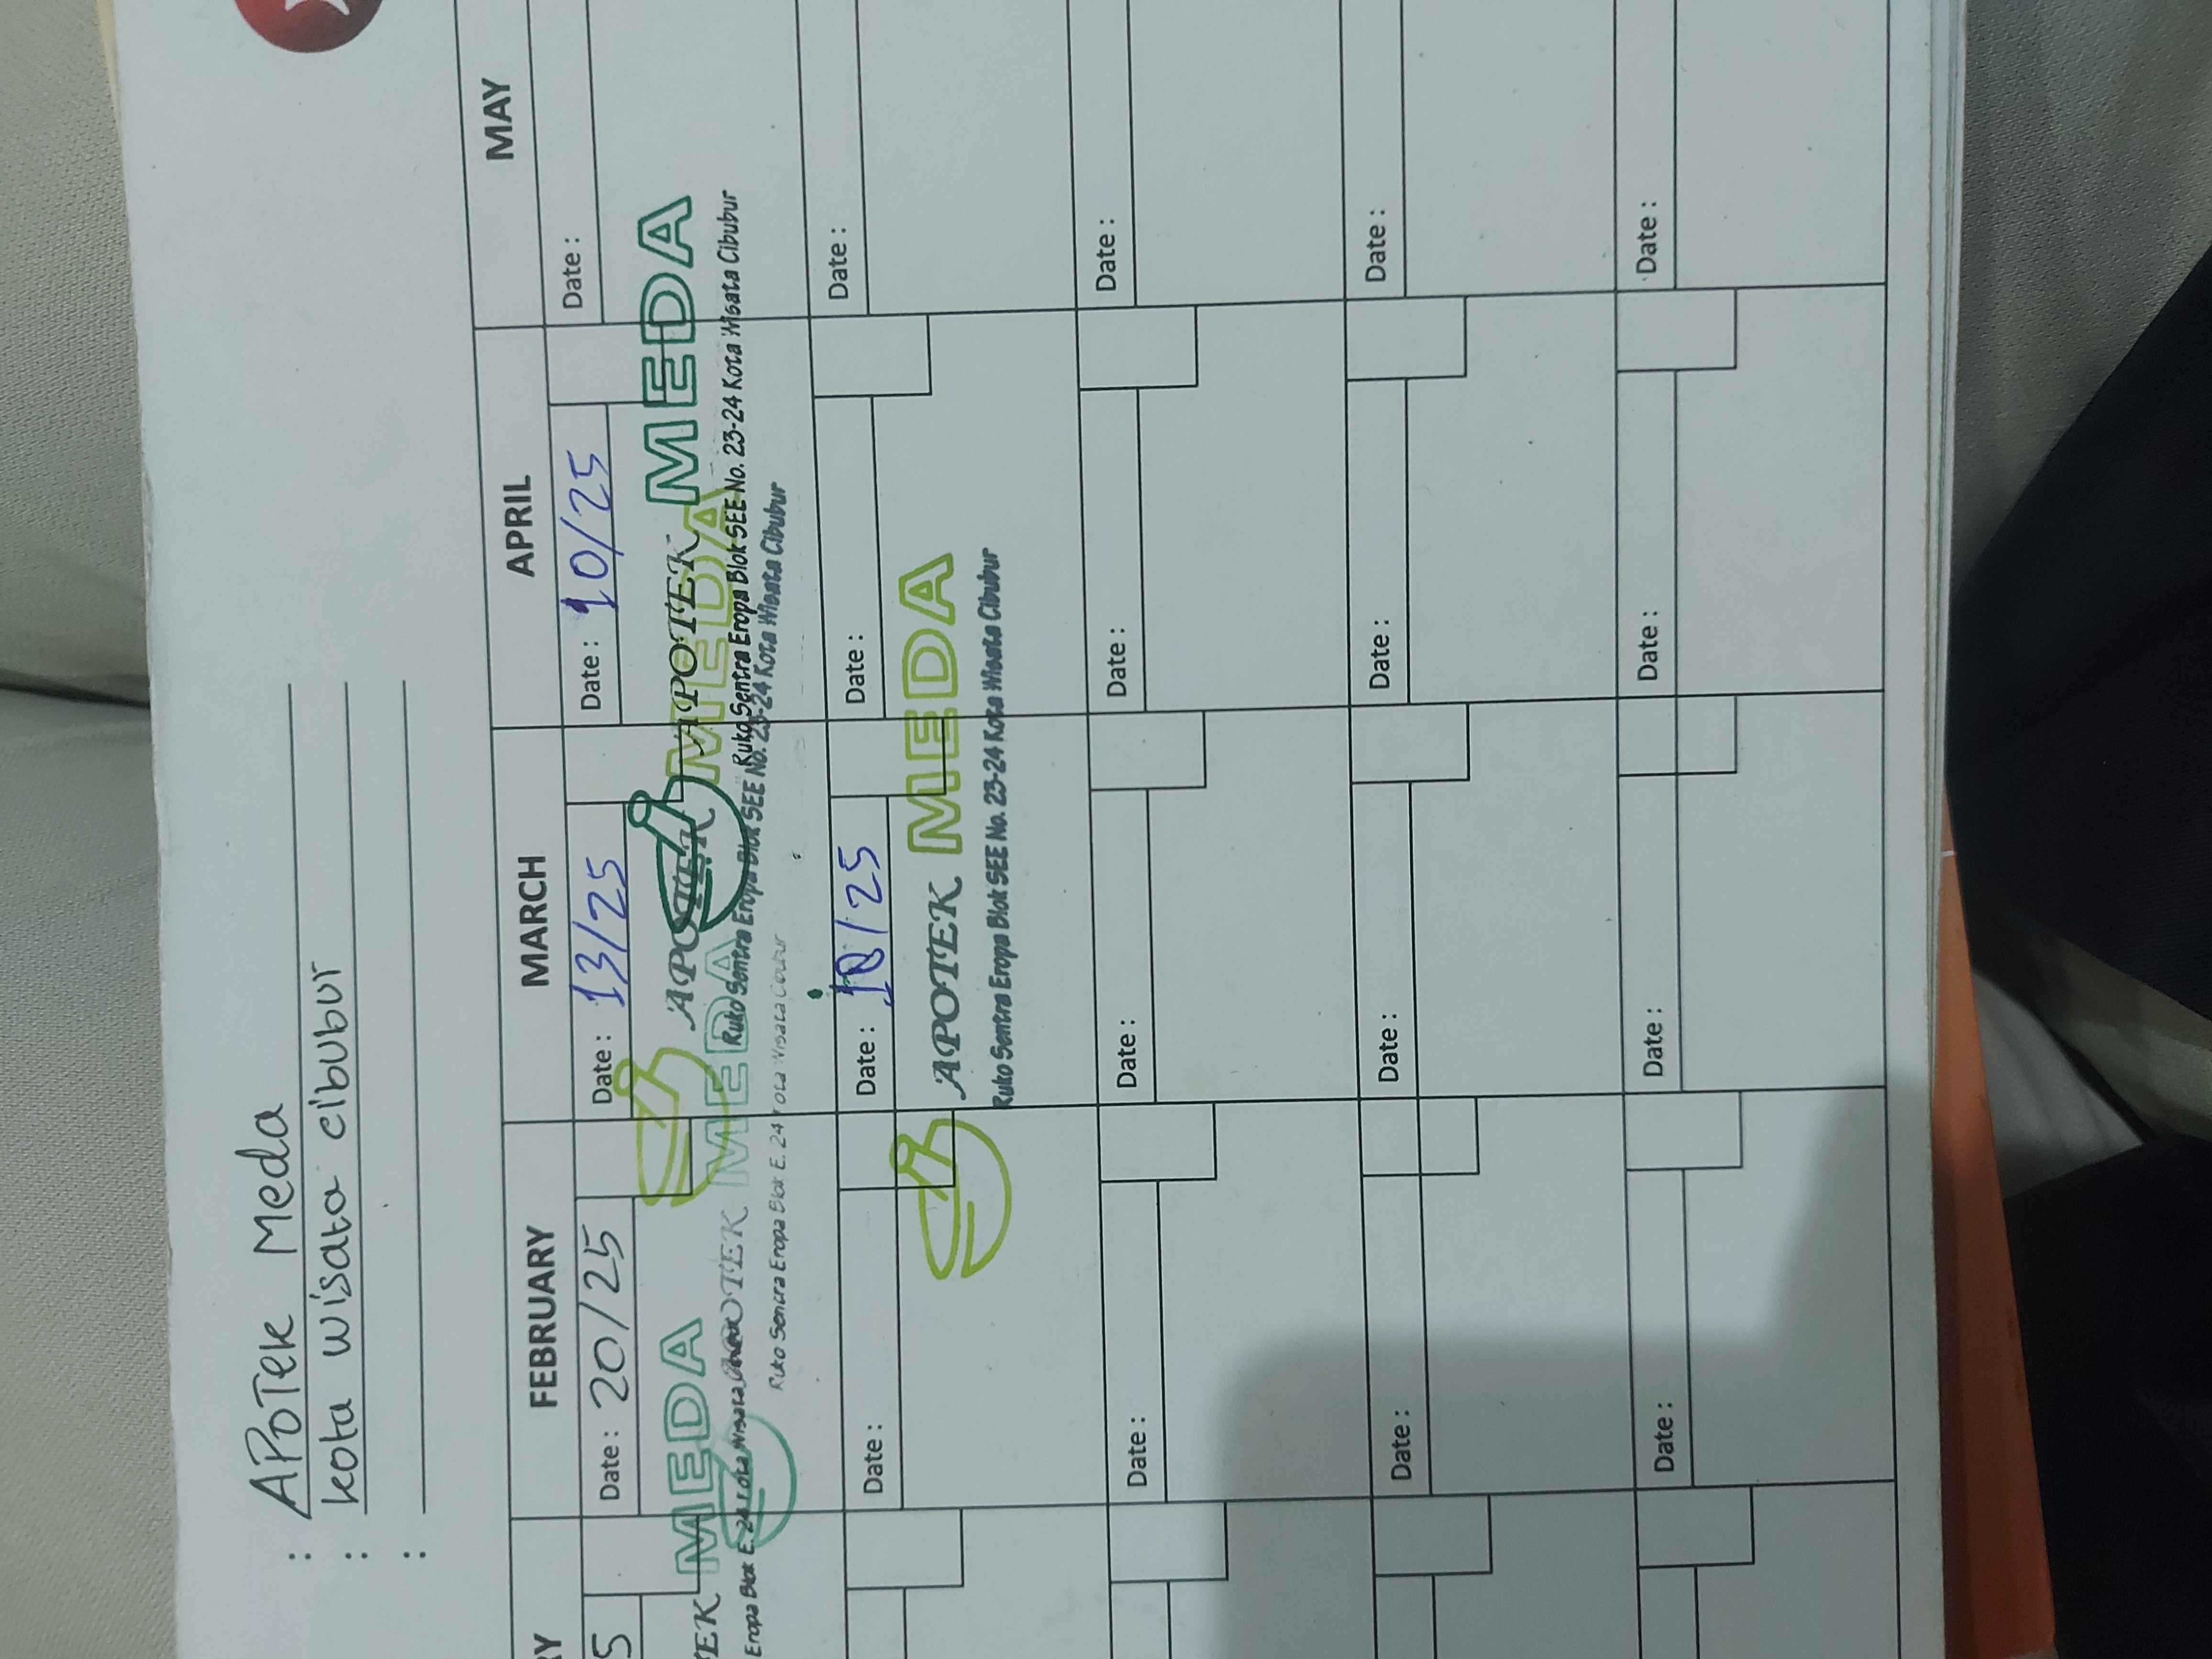 : APOTEK MEDA
: kota wisata cibubur
:
RY FEBRUARY MARCH APRIL MAY
5 Date: 20/25 Date: 13/25 Date: 10/25 Date:
TEK MEDA
Eropa Blok E. 24 Kota Wisata
APOTEK MEDA
Ruko Sentra Eropa Blok E. 24 Kota Wisata Cibubur
APOTEK MEDA
Ruko Sentra Eropa Blok SEE No. 23-24 Kota Wisata Cibubur
APOTEK MEDA
Ruko Sentra Eropa Blok SEE No. 23-24 Kota Wisata Cibubur
Date: Date: /25 Date: Date:
APOTEK MEDA
Ruko Sentra Eropa Blok SEE No. 23-24 Kota Wisata Cibubur
Date: Date: Date: Date:
Date: Date: Date: Date:
Date: Date: Date: Date: